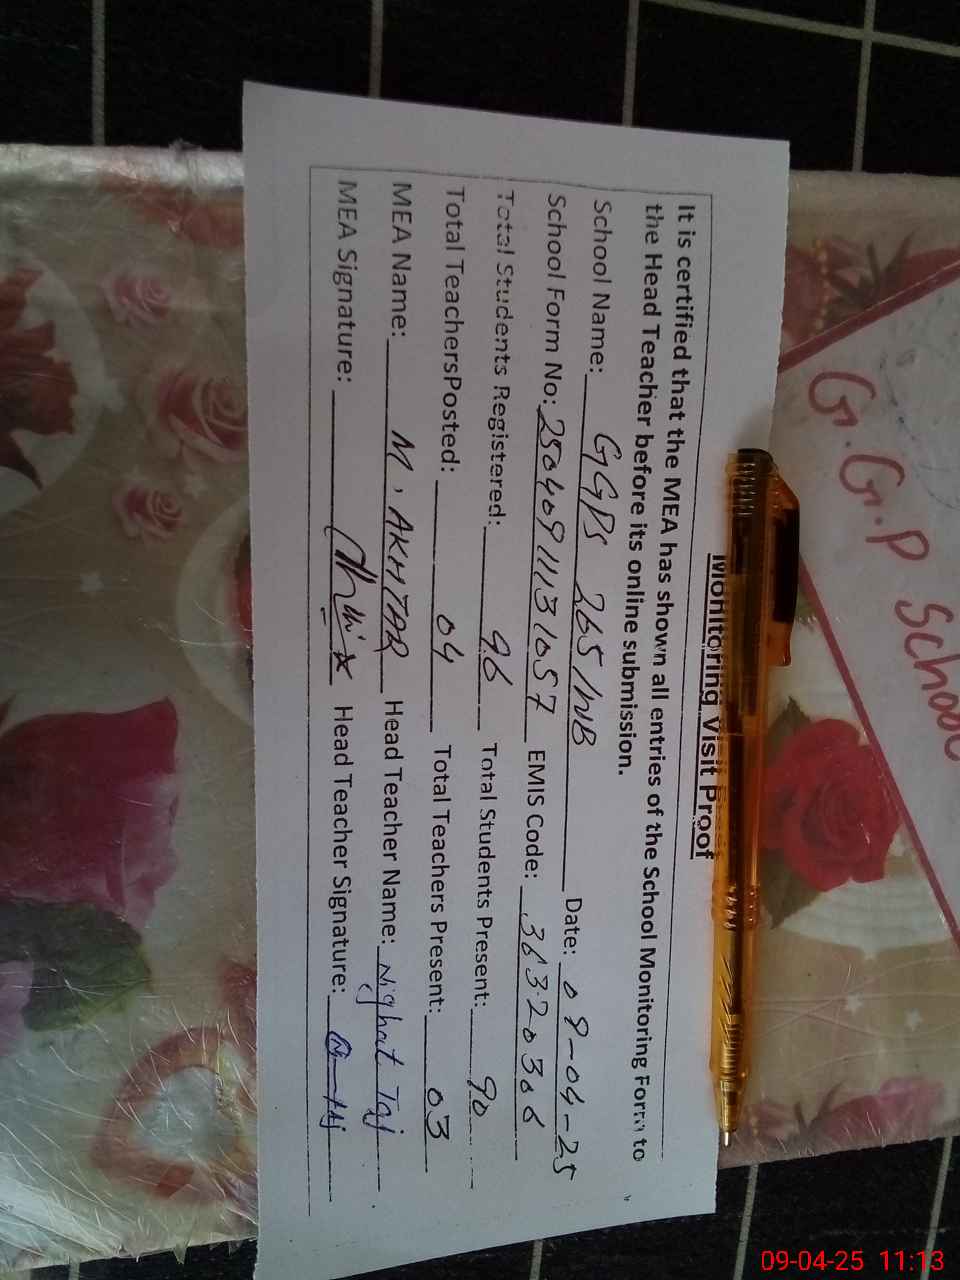 Monitoring Visit Proof
It is certified that the MEA has shown all entries of the School Monitoring Form to
the Head Teacher before its online submission.
School Name: GGPS 265/WB Date: 09-04-25
School Form No: 250409111131057 EMIS Code: 36320306
Total Students Registered: 96 Total Students Present: 90
Total TeachersPosted: 04 Total Teachers Present: 03
MEA Name: M. AKHTAR Head Teacher Name: Nighat Taj
MEA Signature: Head Teacher Signature:
G.G.P School
09-04-25 11:13